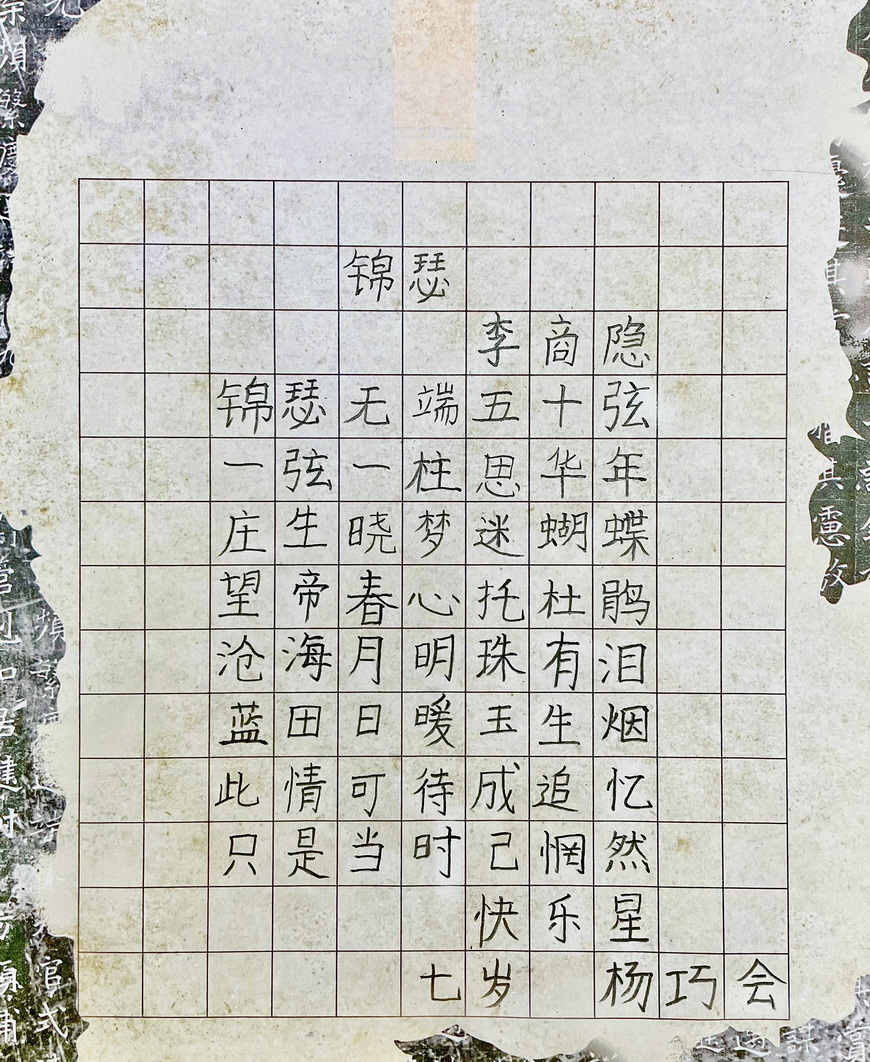 锦瑟
李商隐
锦瑟无端五十弦
一弦一柱思华年
庄生晓梦迷蝴蝶
望帝春心托杜鹃
沧海月明珠有泪
蓝田日暖玉生烟
此情可待成追忆
只是当时己惘然
快乐星
七岁 杨巧会